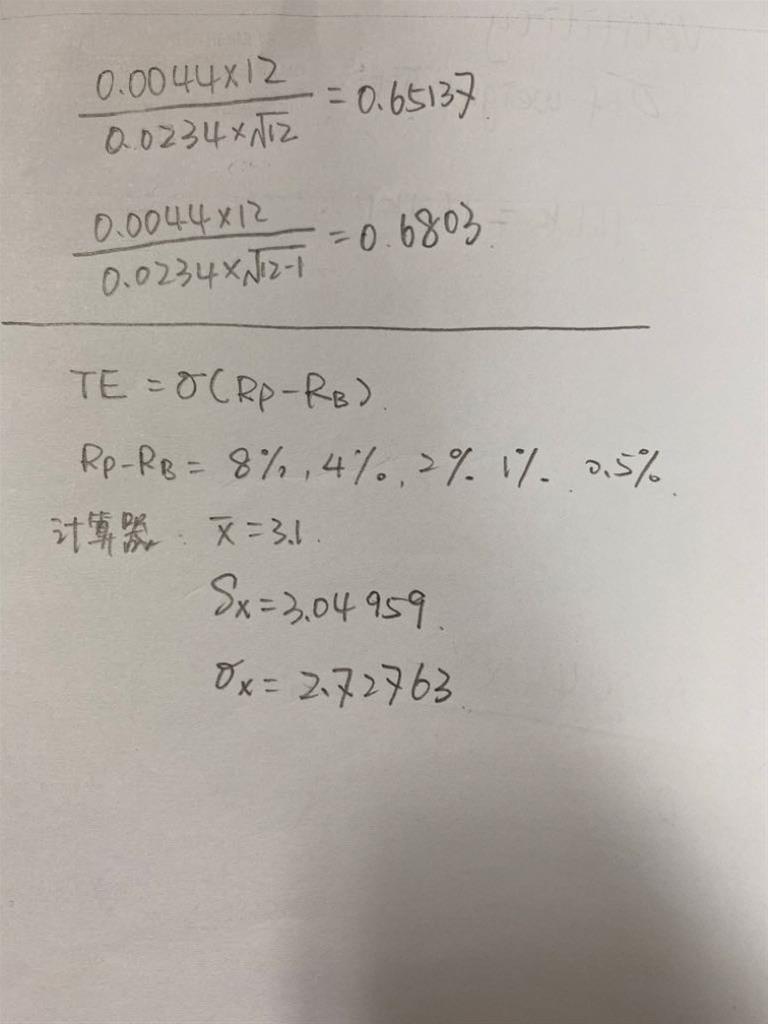 0.0044×12 / 0.0234×√12 = 0.65137
0.0044×12 / 0.0234×√12-1 = 0.6803
TE = σ(RP-RB).
RP-RB = 8%, 4%, 2%. 1%. 0.5%.
计算器. x̄=3.1.
Sx=3.04959.
σx= 2.72763